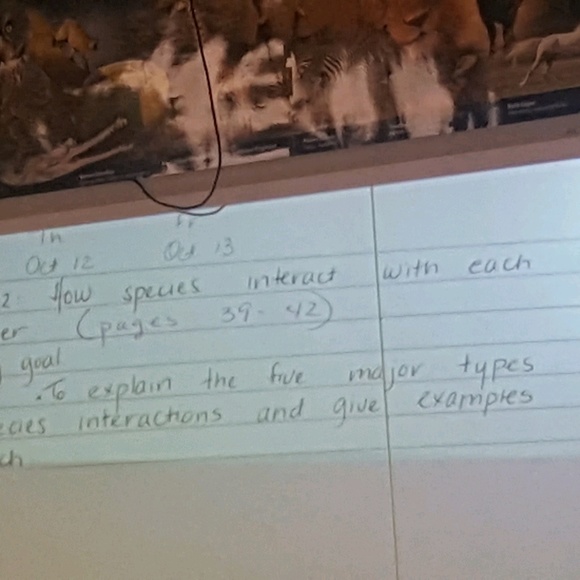 Th Fr
Oct 12 Oct 13
2. How species interact with each
er (pages 39-42)
goal
. To explain the five major types
ecies interactions and give examples
ch